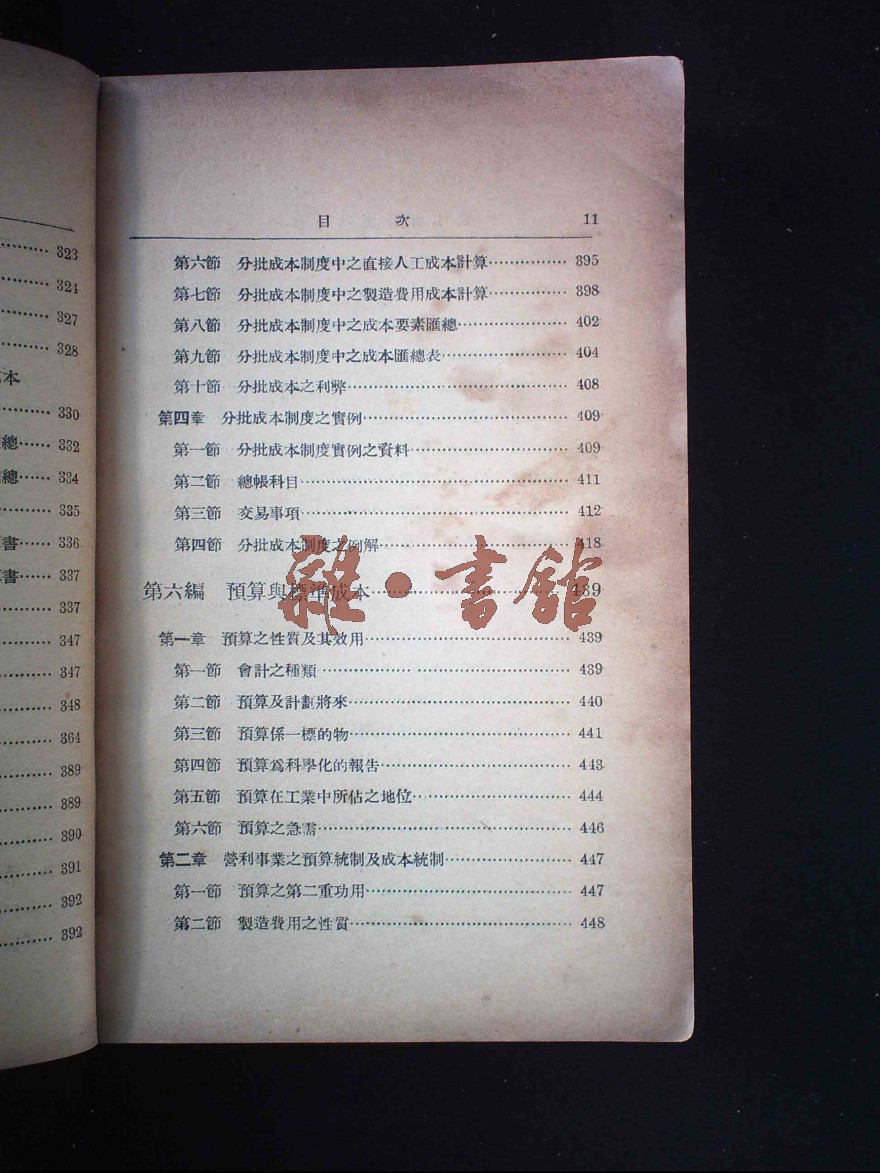 323
324
327
328
本
330
總…… 332
總…… 334
335
書…… 336
書…… 337
337
347
347
348
364
389
389
390
391
392
392
目 次 11
第六節 分批成本制度中之直接人工成本計算…………… 395
第七節 分批成本制度中之製造費用成本計算…………… 398
第八節 分批成本制度中之成本要素匯總…………… 402
第九節 分批成本制度中之成本匯總表…………… 404
第十節 分批成本之利弊…………… 408
第四章 分批成本制度之實例…………… 409
第一節 分批成本制度實例之資料…………… 409
第二節 總帳科目…………… 411
第三節 交易事項…………… 412
第四節 分批成本制度之例解…………… 418
第六編 預算與標準成本…………… 439
第一章 預算之性質及其效用…………… 439
第一節 會計之種類…………… 439
第二節 預算及計劃將來…………… 440
第三節 預算係一標的物…………… 441
第四節 預算爲科學化的報告…………… 443
第五節 預算在工業中所佔之地位…………… 444
第六節 預算之急需…………… 446
第二章 營利事業之預算統制及成本統制…………… 447
第一節 預算之第二重功用…………… 447
第二節 製造費用之性質…………… 448
雜·書館